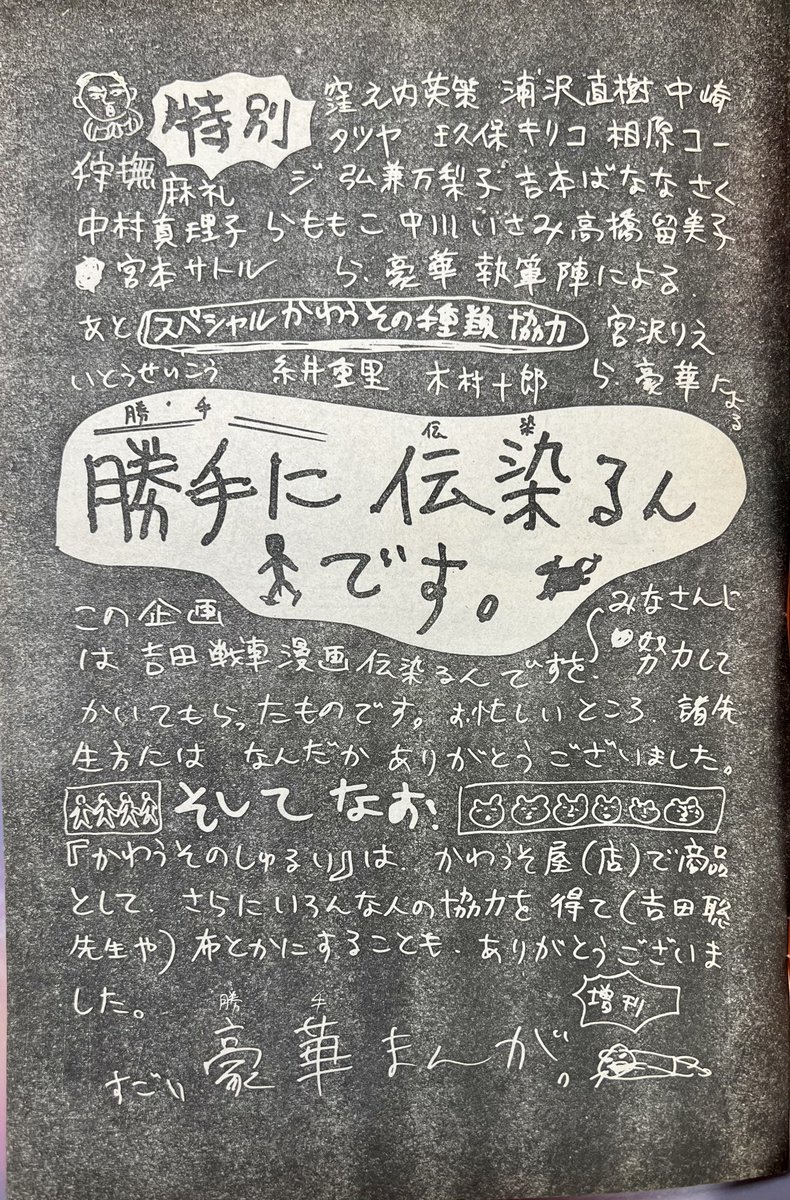 特別
窪之内英策 浦沢直樹 中崎
タツヤ 玖保キリコ 相原コー
ジ 弘兼万梨子 吉本ばなな さく
狩撫麻礼
中村真理子 らももこ 中川いさみ 高橋留美子
宮本サトル ら、豪華執筆陣による
あと スペシャルかわうその種類協力 宮沢りえ
いとうせいこう 糸井重里 木村十郎 ら、豪華による
勝・手 伝 染
勝手に伝染るん
です。
この企画 みなさんに
は 吉田戦車漫画伝染るんですを、努力して
かいてもらったものです。お忙しいところ、諸先
生方には なんだか ありがとうございました。
そしてなお、
『かわうそのしゅるい』は、かわうそ屋(店)で商品
として、さらにいろんな人の協力を得て(吉田聡
先生や)布とかにすることも、ありがとうございま
した。
増刊
勝 手
すごい 豪華まんが。